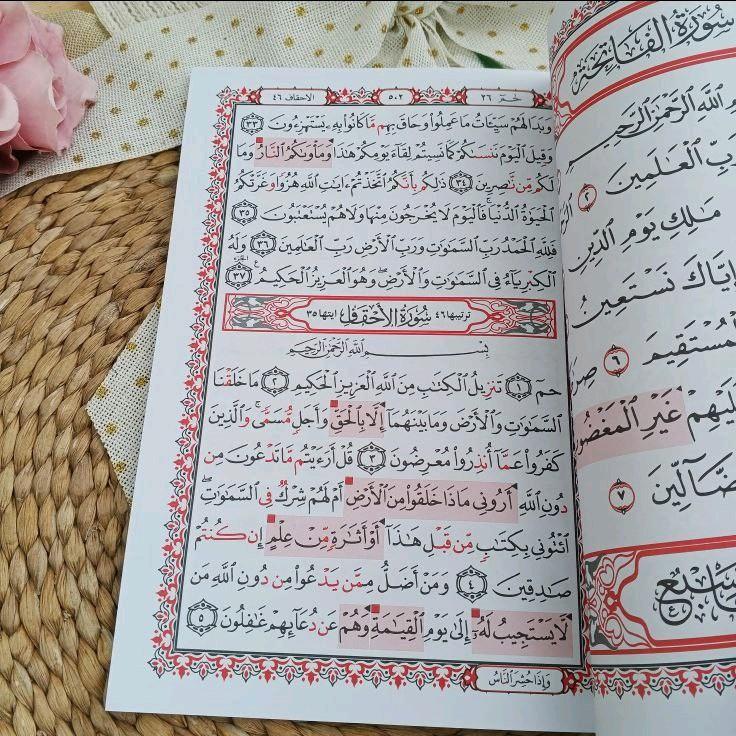 حزب ٢٦
٥٠٢
الأحقاف ٤٦
وَبَدَا لَهُمْ سَيِّـَٔاتُ مَا عَمِلُوا۟ وَحَاقَ بِهِم مَّا كَانُوا۟ بِهِۦ يَسْتَهْزِءُونَ ٣٣
وَقِيلَ ٱلْيَوْمَ نَنسَىٰكُمْ كَمَا نَسِيتُمْ لِقَآءَ يَوْمِكُمْ هَٰذَا وَمَأْوَىٰكُمُ ٱلنَّارُ وَمَا
لَكُم مِّن نَّٰصِرِينَ ٣٤ ذَٰلِكُم بِأَنَّكُمُ ٱتَّخَذْتُمْ ءَايَٰتِ ٱللَّهِ هُزُوًا وَغَرَّتْكُمُ
ٱلْحَيَوٰةُ ٱلدُّنْيَا فَٱلْيَوْمَ لَا يُخْرَجُونَ مِنْهَا وَلَا هُمْ يُسْتَعْتَبُونَ ٣٥
فَلِلَّهِ ٱلْحَمْدُ رَبِّ ٱلسَّمَٰوَٰتِ وَرَبِّ ٱلْأَرْضِ رَبِّ ٱلْعَٰلَمِينَ ٣٦ وَلَهُ
ٱلْكِبْرِيَآءُ فِى ٱلسَّمَٰوَٰتِ وَٱلْأَرْضِ وَهُوَ ٱلْعَزِيزُ ٱلْحَكِيمُ ٣٧
ترتيبها ٤٦ سُورَةُ الأَحْقَافِ آيتها ٣٥
بِسْمِ ٱللَّهِ ٱلرَّحْمَٰنِ ٱلرَّحِيمِ
حمٓ ١ تَنزِيلُ ٱلْكِتَٰبِ مِنَ ٱللَّهِ ٱلْعَزِيزِ ٱلْحَكِيمِ ٢ مَا خَلَقْنَا
ٱلسَّمَٰوَٰتِ وَٱلْأَرْضَ وَمَا بَيْنَهُمَآ إِلَّا بِٱلْحَقِّ وَأَجَلٍ مُّسَمًّى وَٱلَّذِينَ
كَفَرُوا۟ عَمَّآ أُنذِرُوا۟ مُعْرِضُونَ ٣ قُلْ أَرَءَيْتُم مَّا تَدْعُونَ مِن
دُونِ ٱللَّهِ أَرُونِى مَاذَا خَلَقُوا۟ مِنَ ٱلْأَرْضِ أَمْ لَهُمْ شِرْكٌ فِى ٱلسَّمَٰوَٰتِ
ٱئْتُونِى بِكِتَٰبٍ مِّن قَبْلِ هَٰذَآ أَوْ أَثَٰرَةٍ مِّنْ عِلْمٍ إِن كُنتُمْ
صَٰدِقِينَ ٤ وَمَنْ أَضَلُّ مِمَّن يَدْعُوا۟ مِن دُونِ ٱللَّهِ مَن
لَّا يَسْتَجِيبُ لَهُۥٓ إِلَىٰ يَوْمِ ٱلْقِيَٰمَةِ وَهُمْ عَن دُعَآئِهِمْ غَٰفِلُونَ ٥
وَإِذَا حُشِرَ ٱلنَّاسُ
سُورَةُ الفَاتِحَةِ
ٱللَّهِ ٱلرَّحْمَٰنِ ٱلرَّحِيمِ
رَبِّ ٱلْعَٰلَمِينَ ٢
مَٰلِكِ يَوْمِ ٱلدِّينِ
إِيَّاكَ نَسْتَعِينُ
ٱلْمُسْتَقِيمَ ٦
عَلَيْهِمْ غَيْرِ ٱلْمَغْضُو
ٱلضَّآلِّينَ ٧